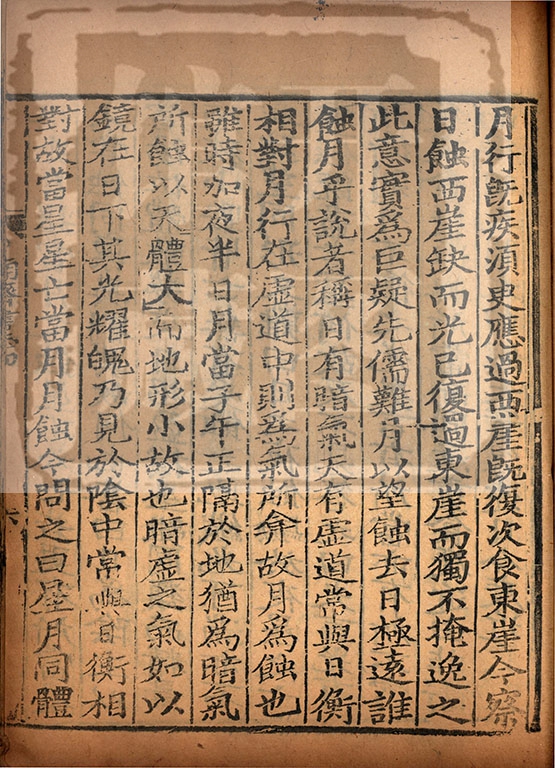 月行旣疾湏臾應過西崖旣復次食東崖今察
日蝕西崖缺而光已復過東崖而獨不掩逸之
此意實爲巨疑先儒難月以望蝕去日極遠誰
蝕月乎說者稱日有暗氣天有虛道常與日衡
相對月行在虛道中則爲氣所弇故月爲蝕也
雖時加夜半日月當子午正隔於地猶爲暗氣
所蝕以天體大而地形小故也暗虛之氣如以
鏡在日下其光耀魄乃見於陰中常與日衡相
對故當星星亡當月月蝕今問之曰星月同體